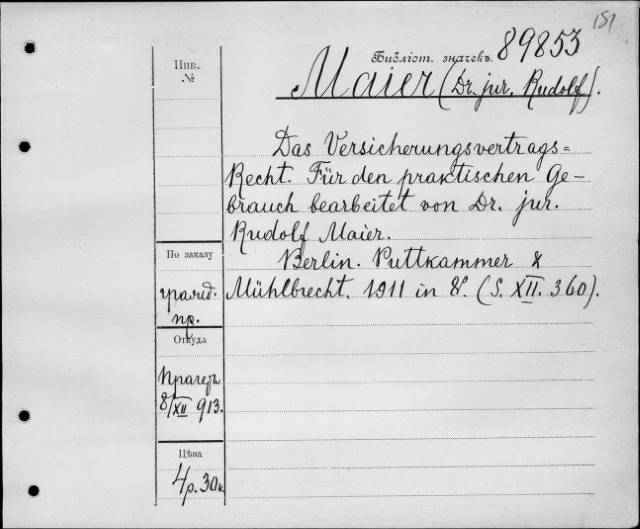 151
Библіот. значекъ. 89853
Инв.
№
Maier (Dr. jur. Rudolf).
Das Versicherungsvertrags=
Recht. Für den praktischen Ge-
brauch bearbeitet von Dr. jur.
Rudolf Maier.
Berlin. Puttkammer &
Mühlbrecht. 1911 in 8. (S. XII. 360).
По заказу
гражд.
пр.
Откуда
Прагеръ
8/XII 913.
Цѣна
4р. 30к